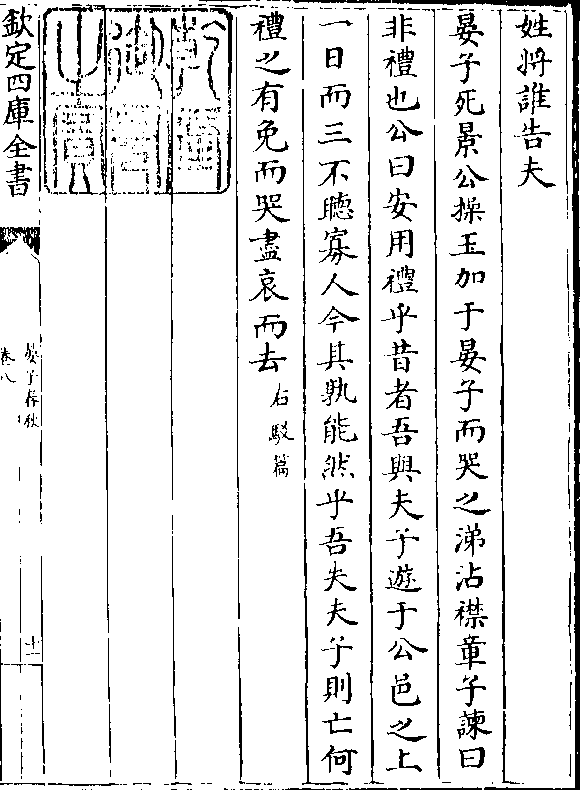 姓將誰告夫
晏子死景公操玉加于晏子而哭之涕沾襟章子諫曰
非禮也公曰安用禮乎昔者吾與夫子遊于公邑之上
一日而三不聽寡人今其孰能然乎吾失夫子則亡何
禮之有免而哭盡哀而去 右駁篇
乾隆御覽之寶
欽定四庫全書
晏子春秋
卷八
十一